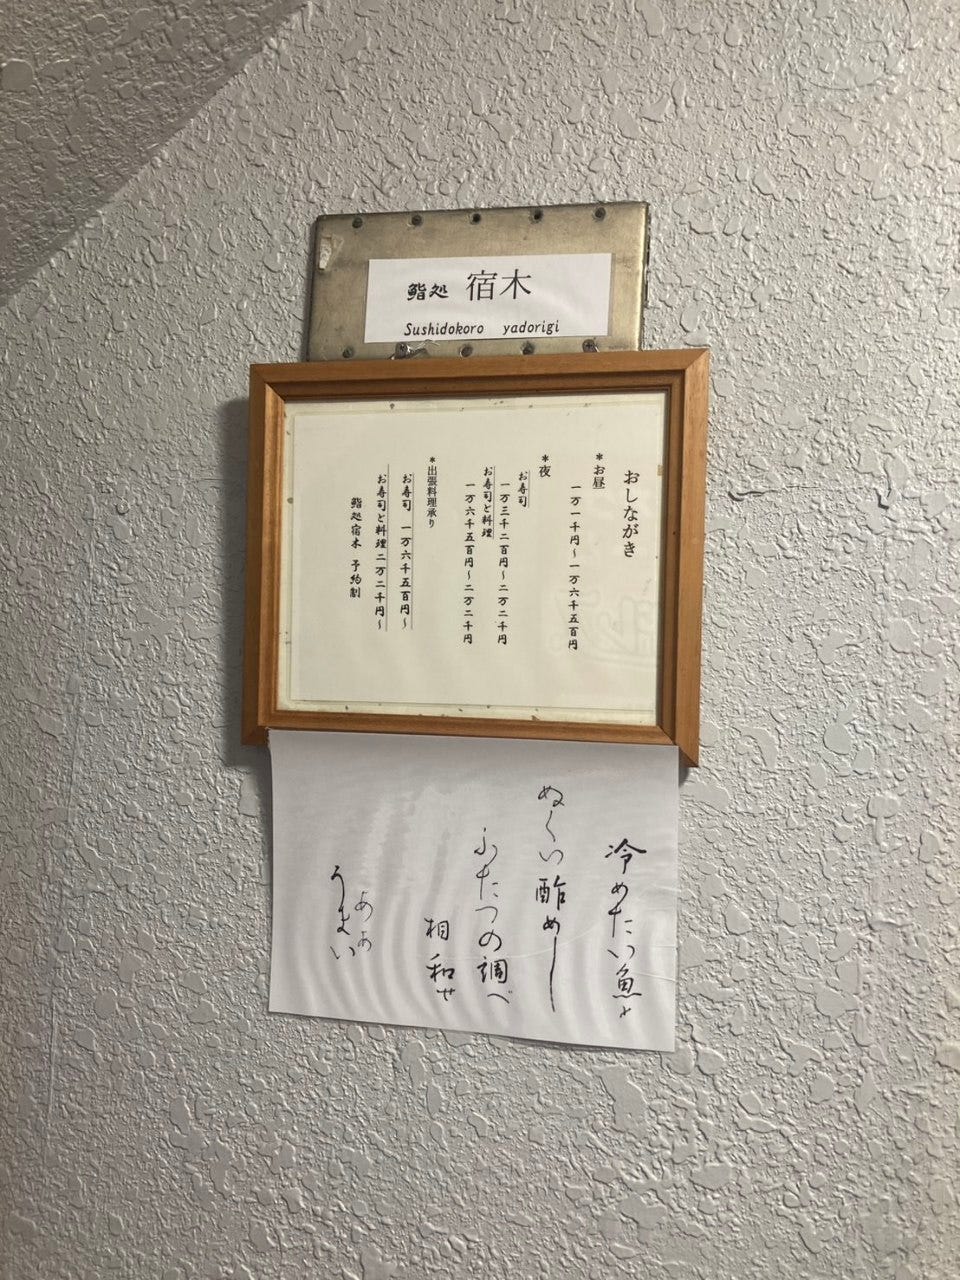 鮨処 宿木
Sushidokoro yadorigi
おしながき
*お昼
一万一千円~一万六千五百円
*夜
お寿司
一万三千二百円~二万二千円
お寿司と料理
一万六千五百円~二万二千円
*出張料理承り
お寿司 一万六千五百円~
お寿司と料理二万二千円~
鮨処宿木 予約制
冷めたい魚と
ぬくい酢めし
ふたつの調べ
相和せ
ああ
うまい